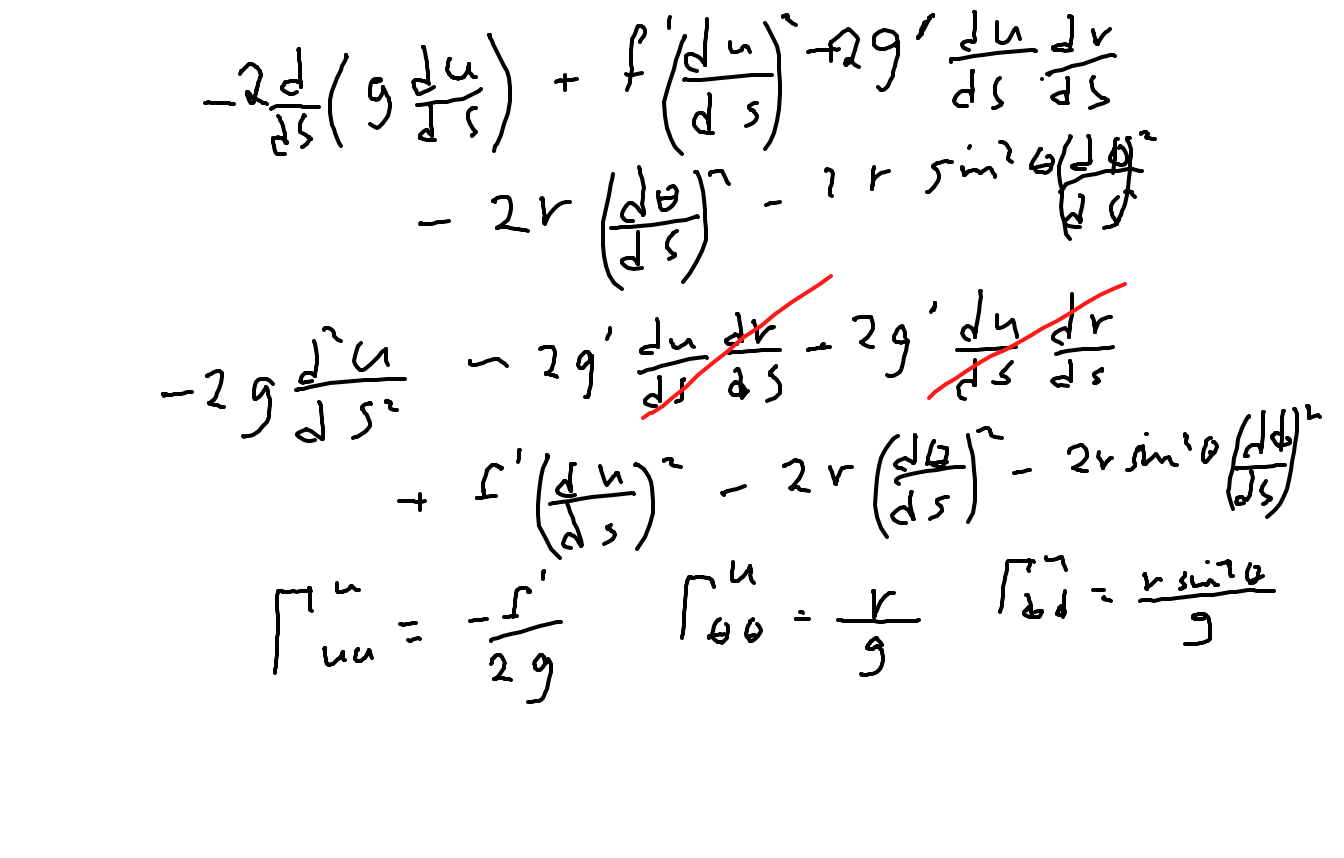 -2 d/ds (g du/ds) + f'(du/ds)² + 2g' du/ds dr/ds
- 2r (dθ/ds)² - 2r sin²θ (dϕ/ds)²
-2g d²u/ds² - 2g' du/ds dr/ds - 2g' du/ds dr/ds
+ f'(du/ds)² - 2r (dθ/ds)² - 2r sin²θ (dϕ/ds)²
Γ^u_uu = -f'/2g Γ^u_θθ = r/g Γ^u_ϕϕ = r sin²θ/g